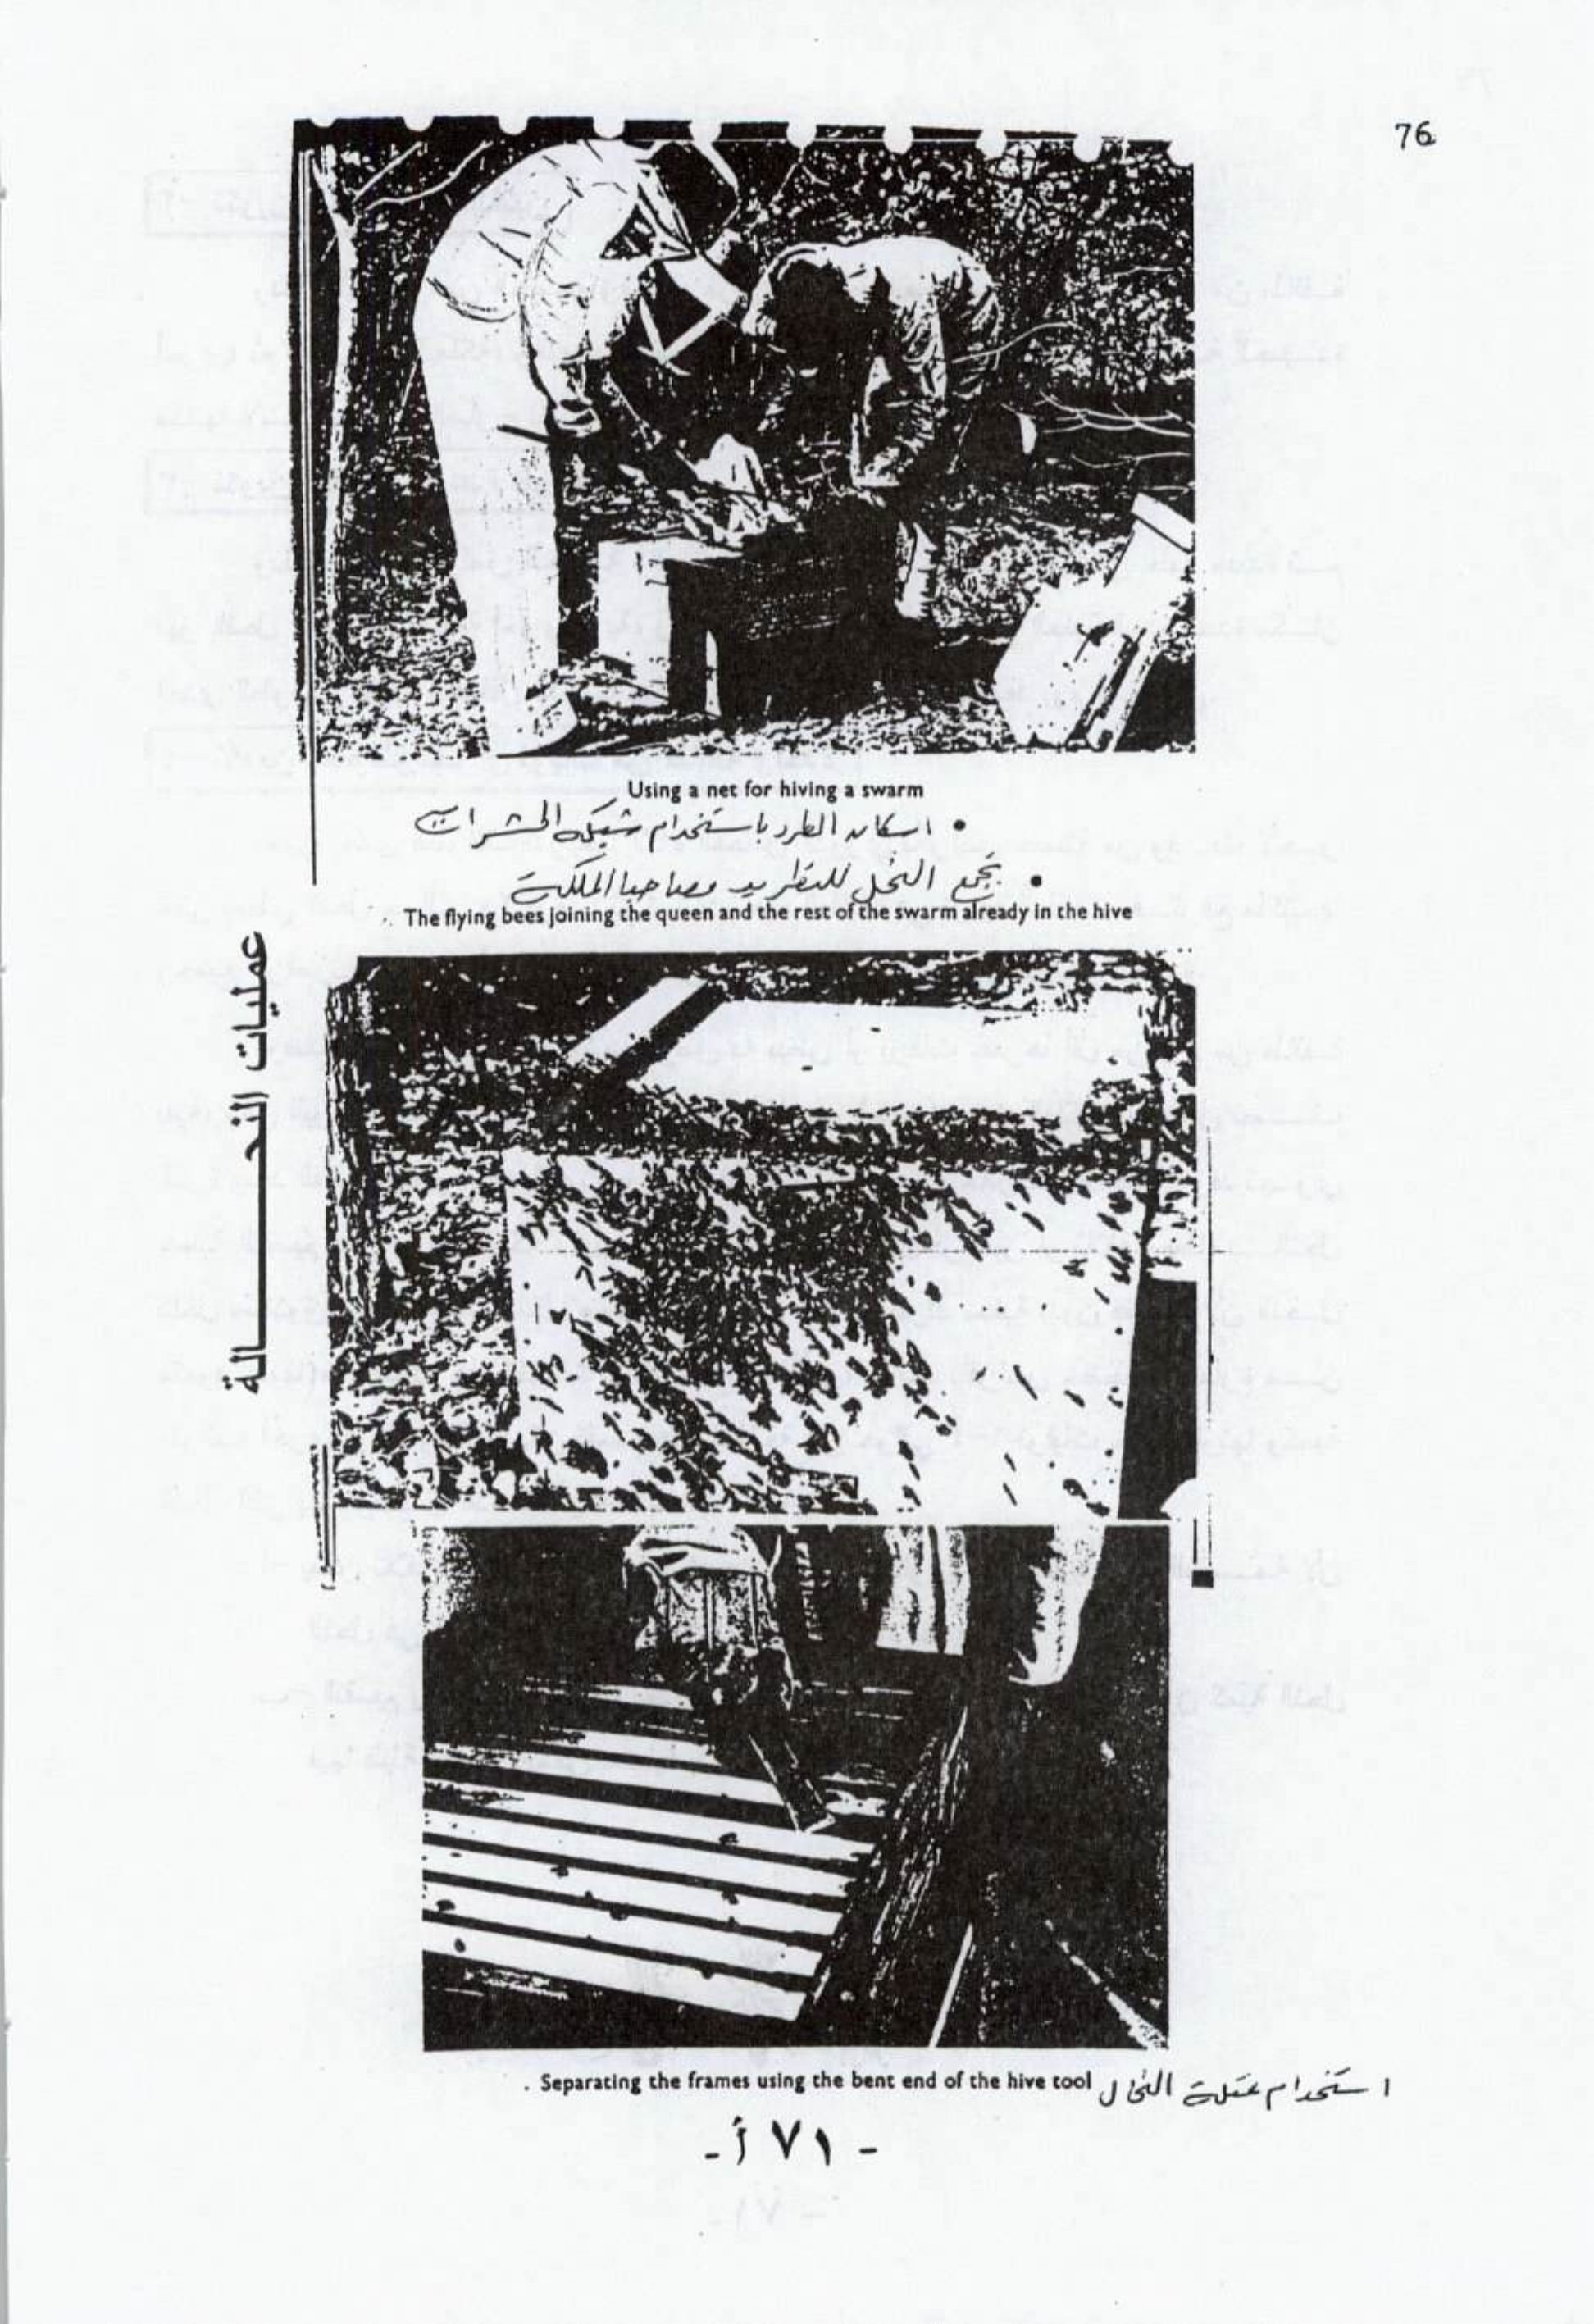 76
Using a net for hiving a swarm
• اسكان الطرد باستخدام شبكة الحشرات
• تجمع النحل للتطريد مصاحبا الملكة
The flying bees joining the queen and the rest of the swarm already in the hive
عمليات النحـــالة
Separating the frames using the bent end of the hive tool . استخدام عتلة النحال
- ٧١ أ -